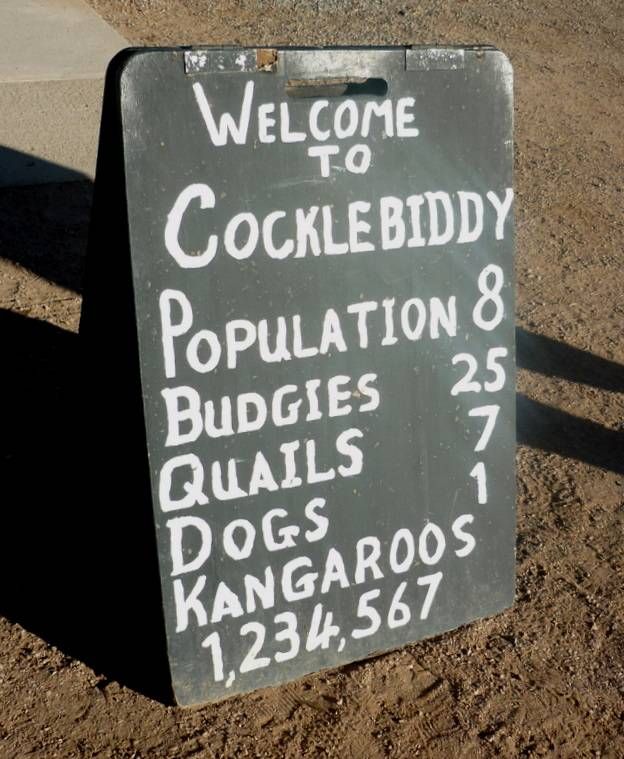 WELCOME
TO
COCKLEBIDDY
POPULATION 8
BUDGIES 25
QUAILS 7
DOGS 1
KANGAROOS
1,234,567